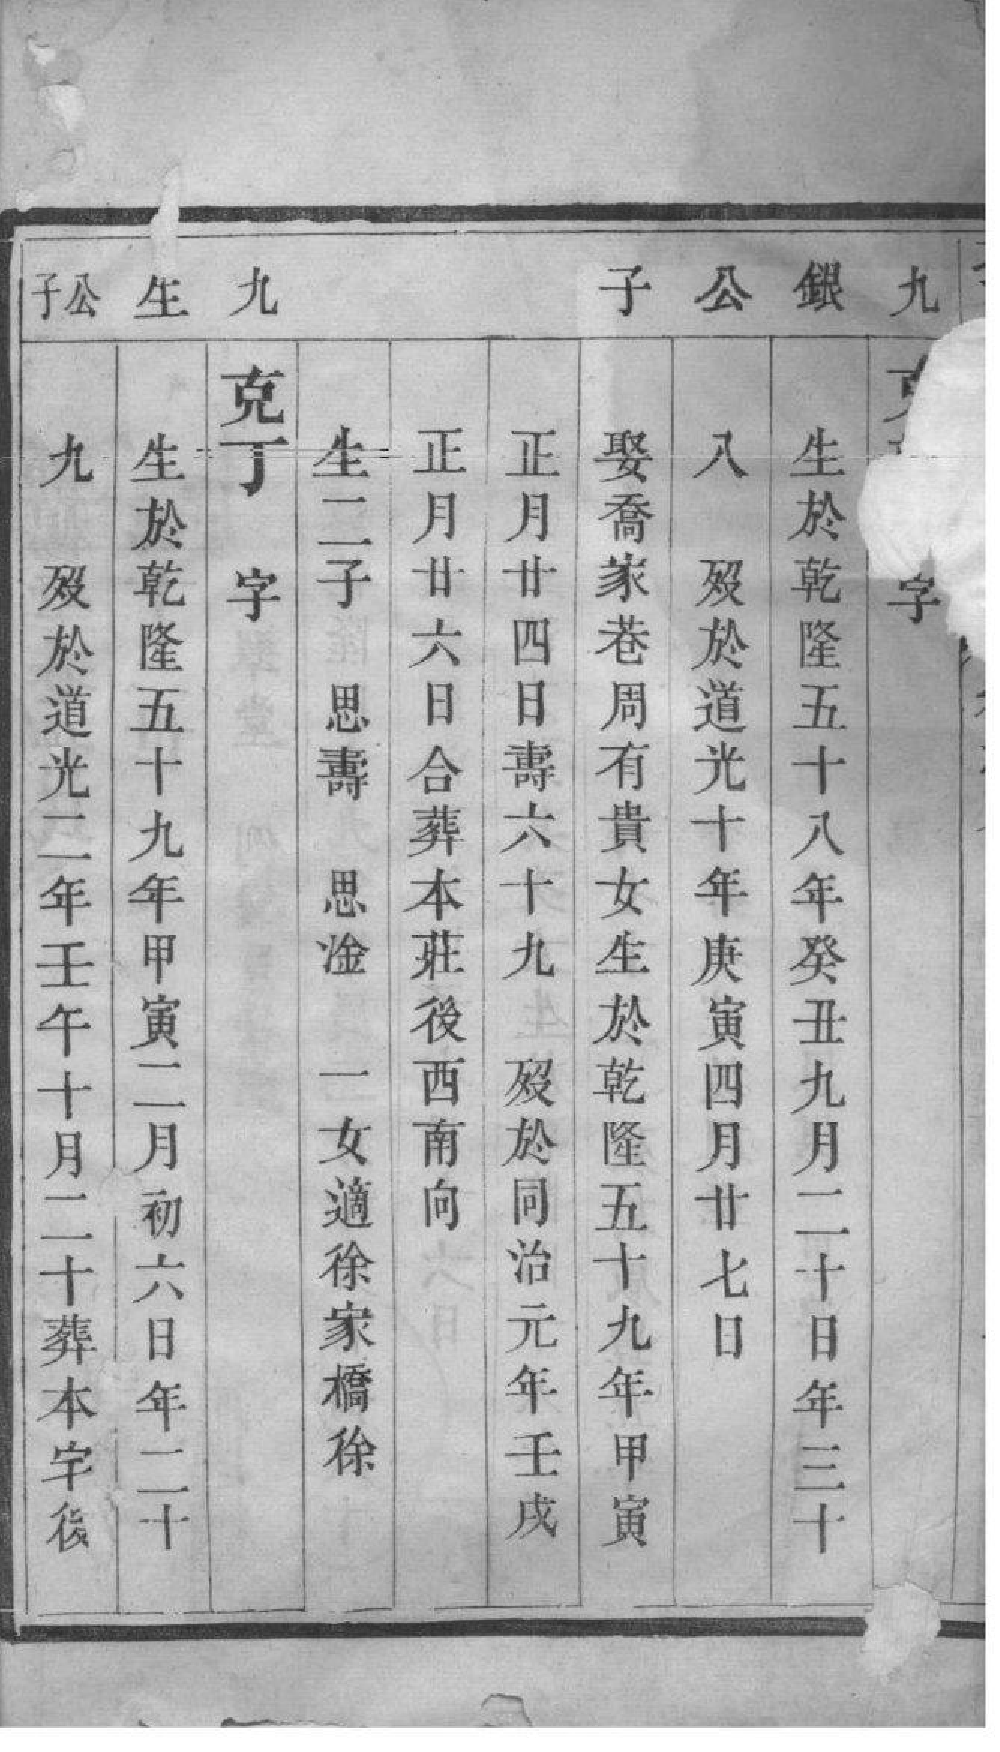 九 克 字
銀 生於乾隆五十八年癸丑九月二十日年三十
公 八 歿於道光十年庚寅四月廿七日
子 娶喬家巷周有貴女生於乾隆五十九年甲寅
正月廿四日壽六十九 歿於同治元年壬戌
正月廿六日合葬本莊後西南向
生二子 思壽 思淦 一女適徐家橋徐
九 克丁 字
生 生於乾隆五十九年甲寅二月初六日年二十
公子 九 歿於道光二年壬午十月二十葬本宅後